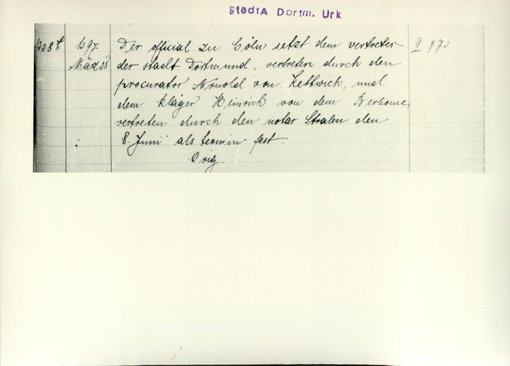 StadtA Dortm. Urk
1397 Der official zu Cöln setzt dem vertreter II 973
März 28 der stadt Dortmund, vertreten durch den
procurator Arnold von Kettwich, und
dem kläger Heinrich von dem
vertreten durch den notar Stralen den
8. Juni als termin fest.
Orig.